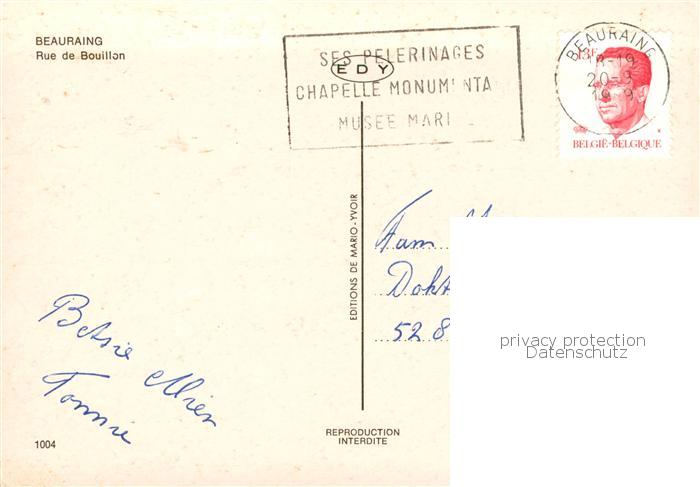 BEAURAING
Rue de Bouillon
SES PELERINAGES
EDY
CHAPELLE MONUM NTA
MUSEE MARI
BEAURAING
18-19
20-3
13F
BELGIË-BELGIQUE
EDITIONS DE MARIO-YVOIR
Fam
Dokt
528
privacy protection
Datenschutz
Betsie Mien
Tonnie
REPRODUCTION
INTERDITE
1004